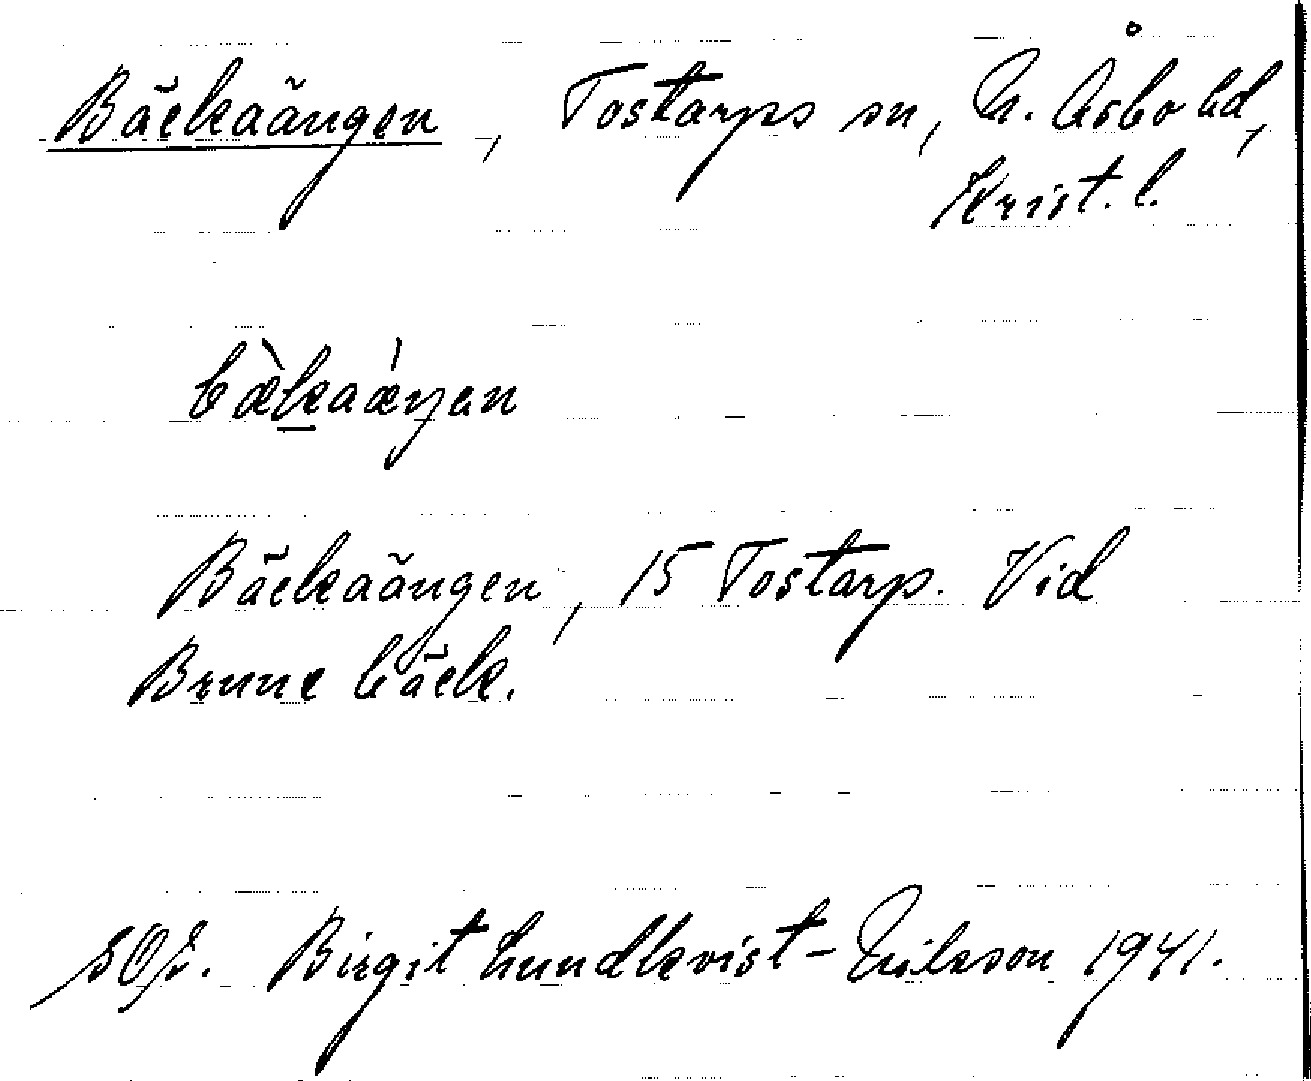 Bäckaängen, Tostarps sn, N. Åsbo hd,
Krist. l.
bæ̀kaǽŋan
Bäckaängen, 15 Tostarp. Vid
Brune bäck.
Birgit Lundkvist-Nilsson 1941.